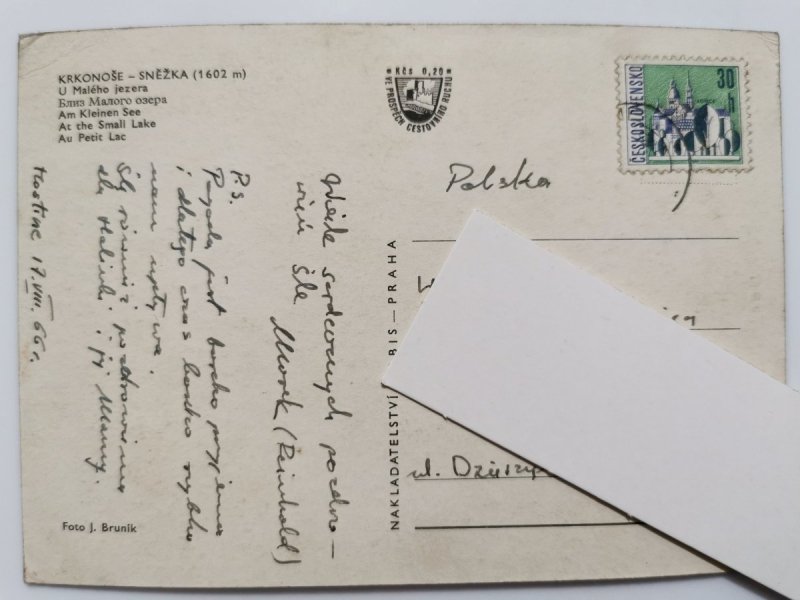 KRKONOŠE – SNĚŽKA (1602 m)
U Malého jezera
Близ Малого озера
Am Kleinen See
At the Small Lake
Au Petit Lac
Kčs 0,20
VE PROSPĚCH CESTOVNÍHO RUCHU
ČESKOSLOVENSKO
30
h
Polska
ul.
NAKLADATELSTVÍ
BIS — PRAHA
Wiele serdecznych pozdro-
wień śle
Marek (Reinhold)
P.S.
Pogoda jest bardzo przyjemna
i dlatego czas bardzo szybko
nam upływa.
Ślę również pozdrowienia
dla Halinki i jej Mamy.
17.VIII.66 r.
Foto J. Bruník